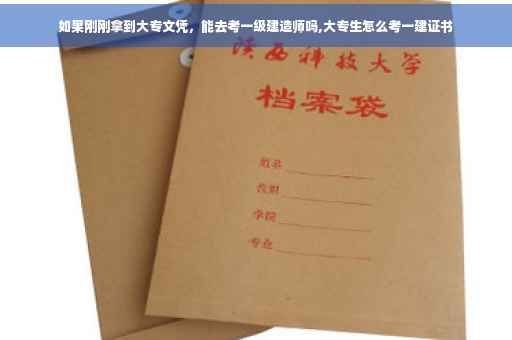 如果刚刚拿到大专文凭，能去考一级建造师吗,大专生怎么考一建证书
陕西科技大学
档案袋
姓名
学院
专业